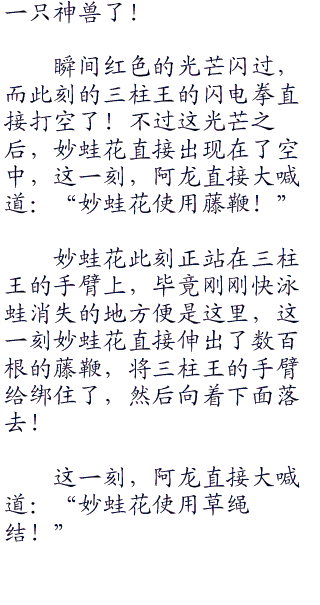 一只神兽了！
瞬间红色的光芒闪过，
而此刻的三柱王的闪电拳直
接打空了！不过这光芒之
后，妙蛙花直接出现在了空
中，这一刻，阿龙直接大喊
道：“妙蛙花使用藤鞭！”
妙蛙花此刻正站在三柱
王的手臂上，毕竟刚刚快泳
蛙消失的地方便是这里，这
一刻妙蛙花直接伸出了数百
根的藤鞭，将三柱王的手臂
给绑住了，然后向着下面落
去！
这一刻，阿龙直接大喊
道：“妙蛙花使用草绳
结！”